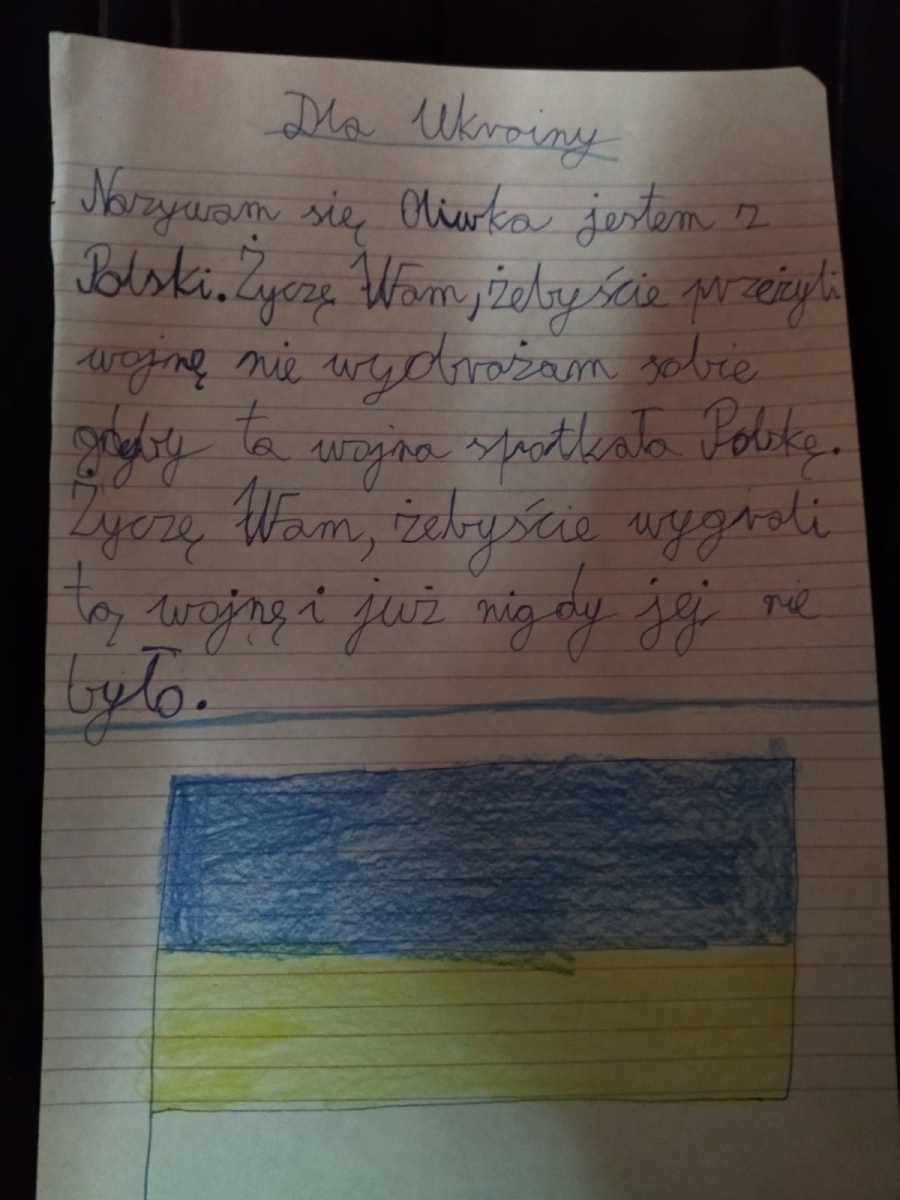 Dla Ukrainy
Nazywam się Oliwka jestem z
Polski. Życzę Wam, żebyście przeżyli
wojnę nie wyobrażam sobie
gdyby ta wojna spotkała Polskę.
Życzę Wam, żebyście wygrali
tą wojnę i już nigdy jej nie
było.